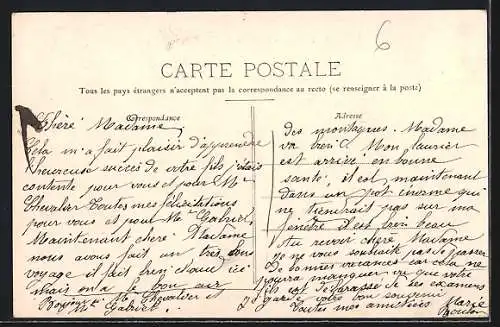 6
CARTE POSTALE
Tous les pays étrangers n'acceptent pas la correspondance au recto (se renseigner à la poste)
Correspondance
Adresse
Chère Madame
Cela m'a fait plaisir d'apprendre
l'heureuse succès de votre fils j'étais
contente pour vous et pour Mr
Chevalier toutes mes félicitations
pour vous et pour Mr Gabriel
Maintenant chere Madame
nous avons fait un très bon
voyage il fait bien chaud ici
Mais on a le bon air
Bonjour à Mr Chevalier et
Mr Gabriel
des montagnes. Madame
va bien. Mon laurier
est arrivé en bonne
santé, il est maintenant
dans un pot énorme qui
ne tiendrait pas sur ma
fenêtre il est bien beau
Au revoir chère Madame
Je ne vous souhaite pas de passer
de bonnes vacances car cela ne
pourra manquer vu que votre
fils est débarassé de ses examens
Je garde votre bon souvenir
Toutes mes amitiées Marie